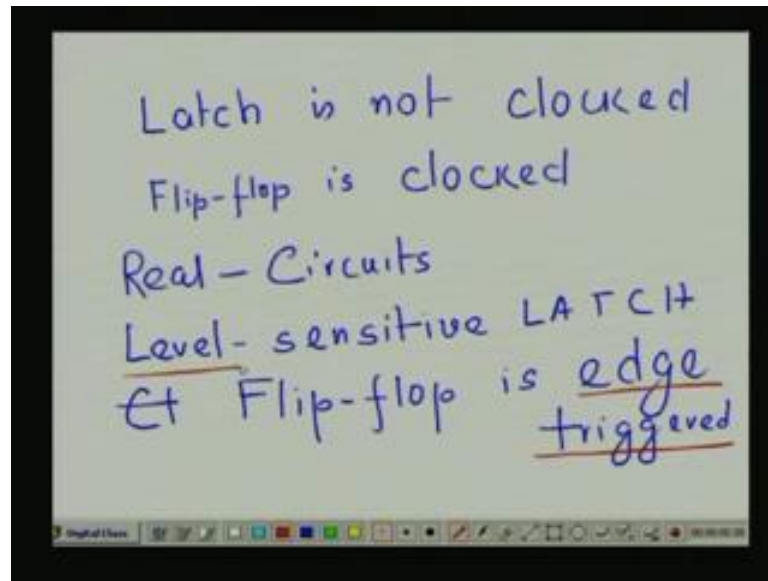 Latch is not clocked
Flip-flop is clocked
Real - Circuits
Level- sensitive LATCH
Flip-flop is edge
triggered
Digital Class